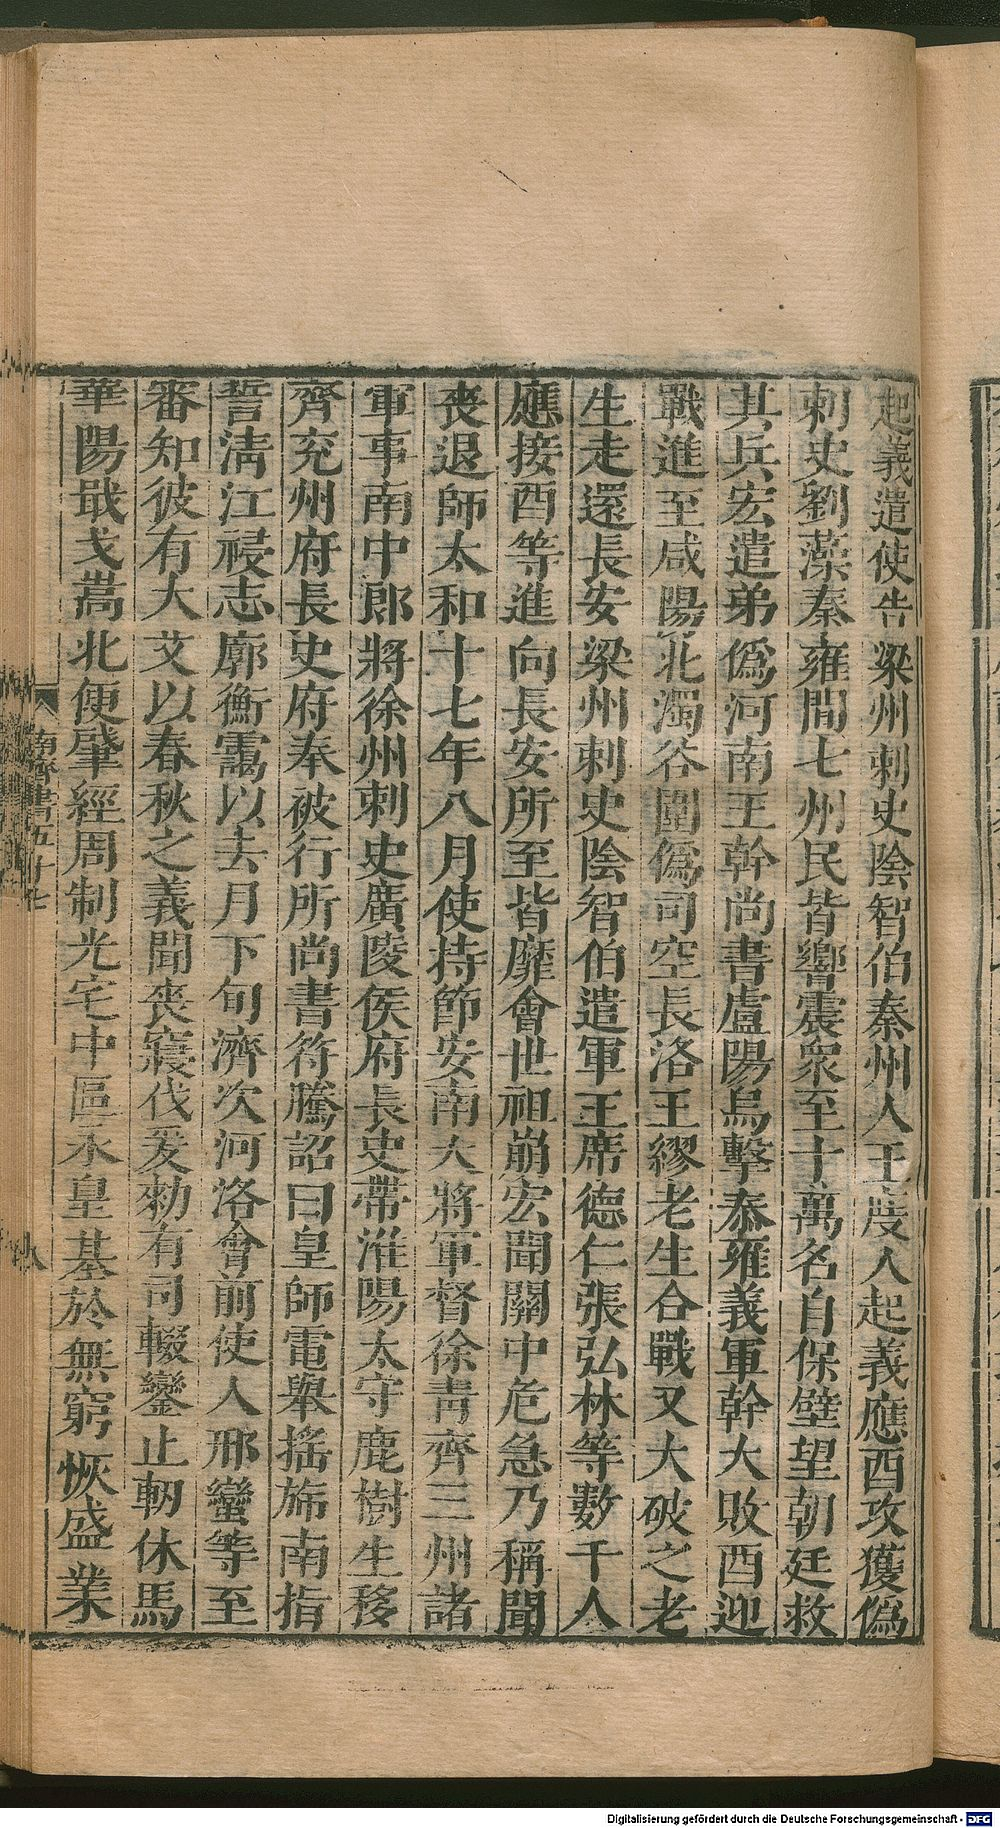 起義遣使告梁州刺史陰智伯秦州人王度人起義應酉攻獲僞
刺史劉藻秦雍間七州民皆響震衆至十萬各自保壁望朝廷救
其兵宏遣弟僞河南王幹尚書盧陽烏擊秦雍義軍幹大敗酉迎
戰進至咸陽北濁谷圍僞司空長洛王繆老生合戰又大破之老
生走還長安梁州刺史陰智伯遣軍王席德仁張弘林等數千人
應接酉等進向長安所至皆靡會世祖崩宏聞關中危急乃稱聞
喪退師太和十七年八月使持節安南大將軍督徐青齊三州諸
軍事南中郎將徐州刺史廣陵侯府長史帶淮陽太守鹿樹生移
齊兖州府長史府奉被行所尚書符騰詔曰皇師電舉搖斾南指
誓淸江祲志廓衡靄以去月下旬濟次河洛會前使人邢巒等至
審知彼有大艾以春秋之義聞喪寢伐爰勑有司輟鑾止軔休馬
華陽戢戈嵩北便肇經周制光宅中區永皇基於無窮恢盛業
南齊書五十七
八
Digitalisierung gefördert durch die Deutsche Forschungsgemeinschaft - DFG